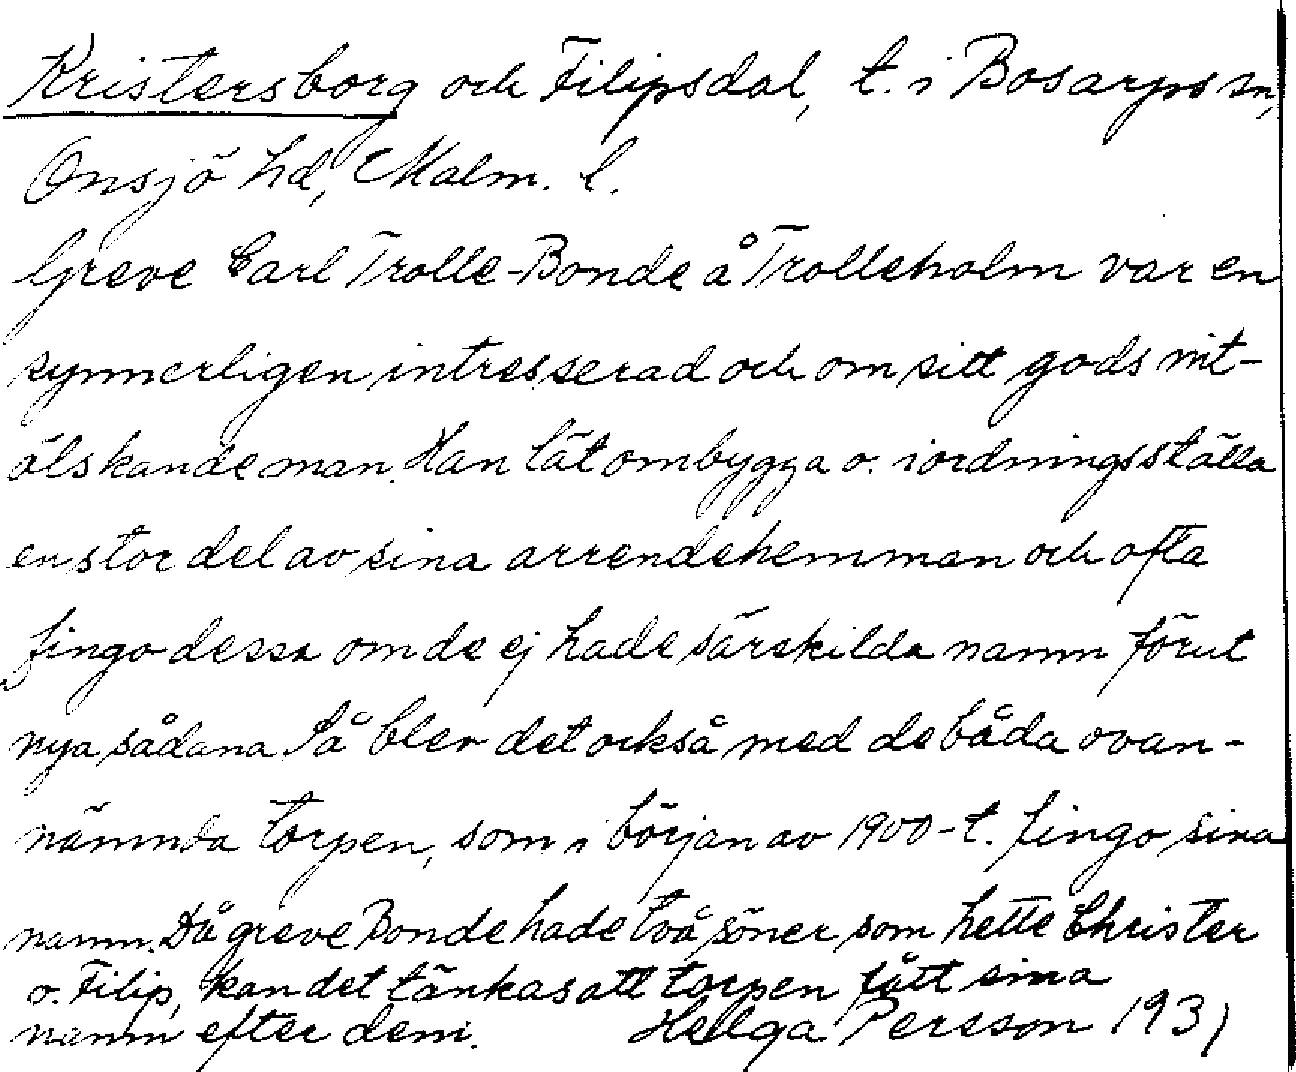 Kristersborg och Filipsdal, t. i Bosarps sn,
Onsjö hd, Malm. l.
Greve Carl Trolle-Bonde å Trolleholm var en
synnerligen intresserad och om sitt gods nit-
älskande man. Han lät ombygga o. iordningsställa
en stor del av sina arrendehemman och ofta
fingo dessa om de ej hade särskilda namn förut
nya sådana. Så blev det också med de båda ovan-
nämnda torpen, som i början av 1900-t. fingo sina
namn. Då greve Bonde hade två söner som hette Christer
o. Filip, kan det tänkas att torpen fått sina
namn efter dem. Hellga Persson 1931